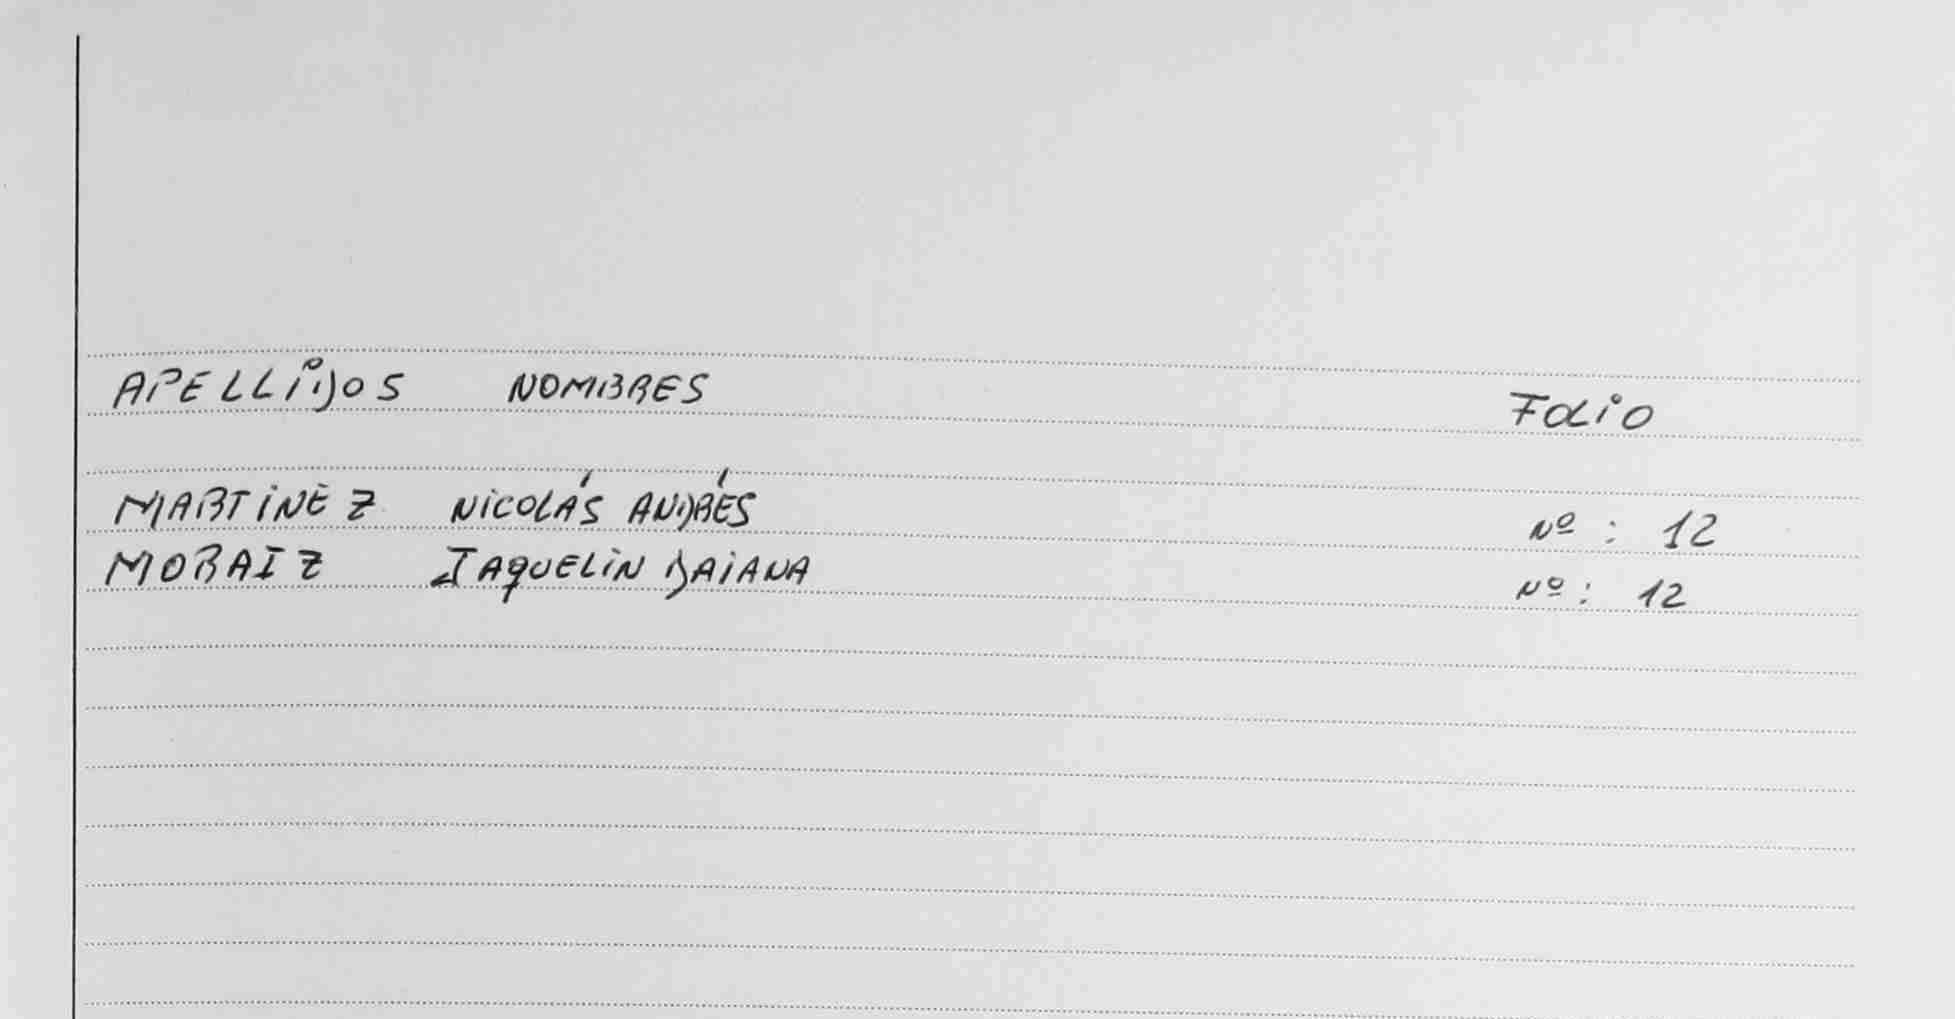 APELLIDOS NOMBRES FOLIO
MARTINEZ NICOLÁS ANDRÉS Nº : 12
MORAIZ JAQUELIN DAIANA Nº : 12